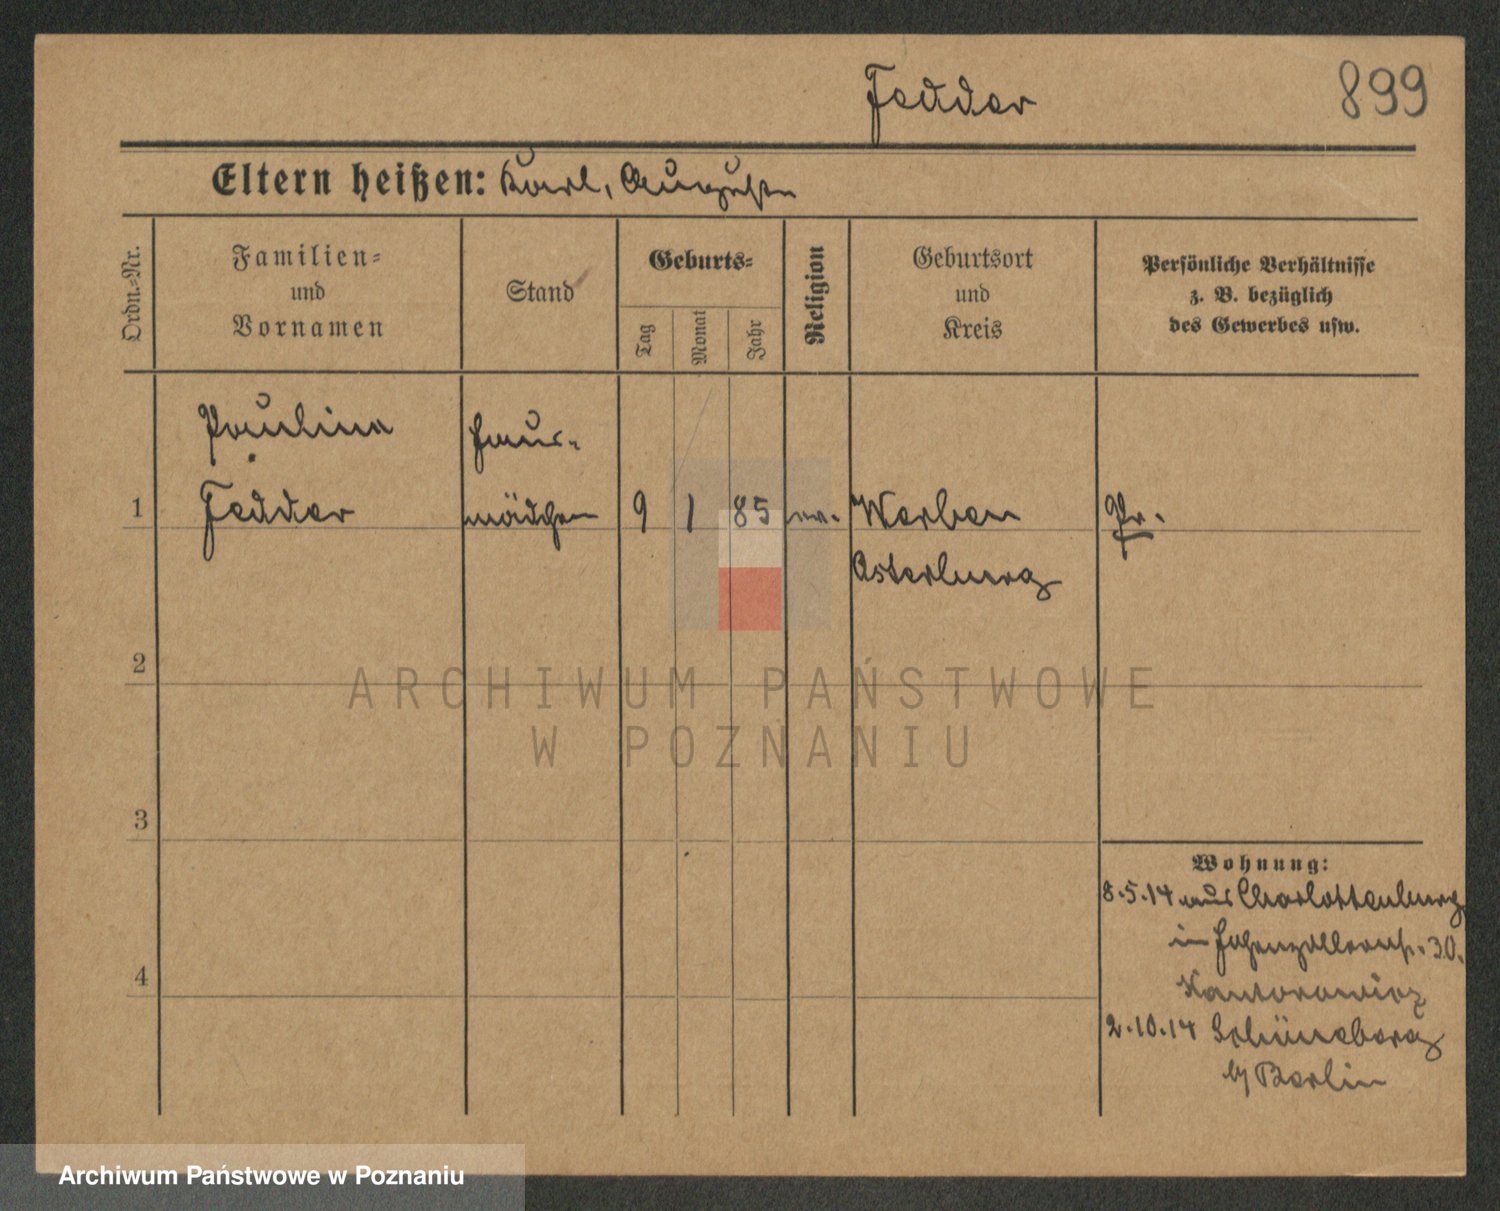 Fedder
899
Eltern heißen: Karl, Auguste
Ordn.-Nr.
Familien-
und
Vornamen
Stand
Geburts-
Tag
Monat
Jahr
Religion
Geburtsort
und
Kreis
Persönliche Verhältnisse
z. B. bezüglich
des Gewerbes usw.
Pauline
Haus-
1 Fedder mädchen 9 1 85 ev. Werben Pr.
Osterburg
2
3
4
Wohnung:
8.5.14 aus Charlottenburg
in Hohenzollernst. 30.
Kantorowicz
2.10.14 Schöneberg
b/ Berlin
ARCHIWUM PAŃSTWOWE
W POZNANIU
Archiwum Państwowe w Poznaniu